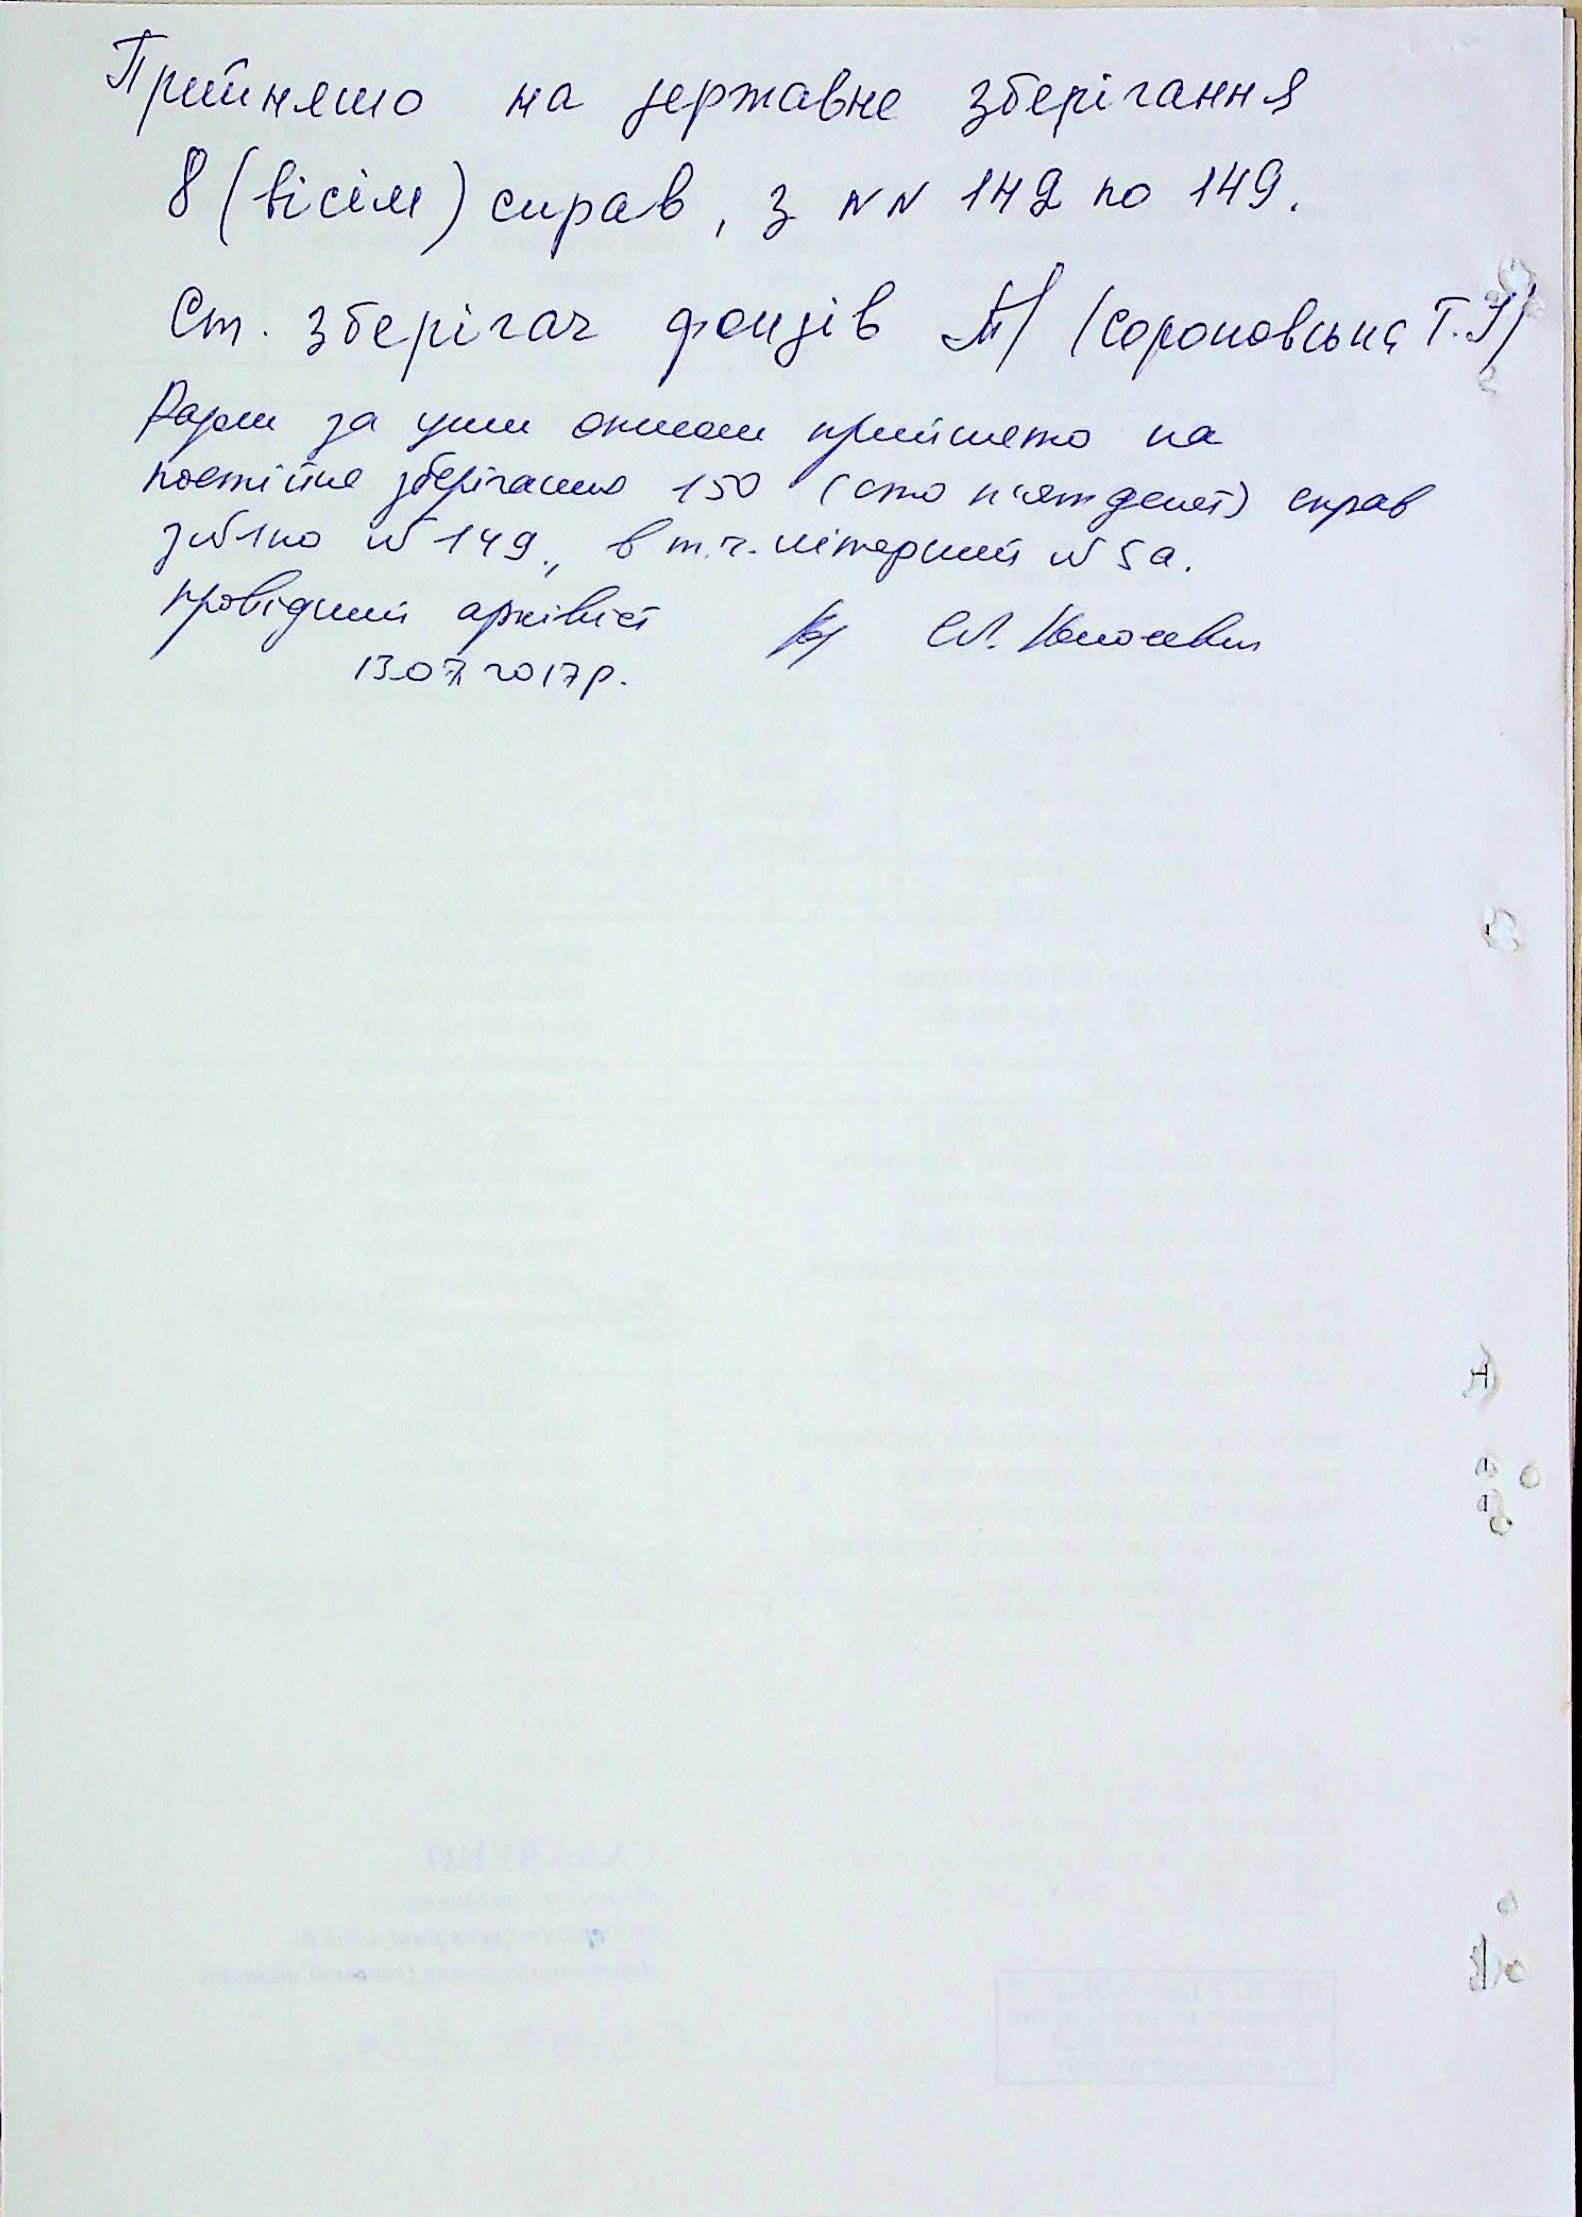 Прийнято на державне зберігання
8 (вісім) справ, з NN 142 по 149.
Ст. зберігач фондів (Сороковська Т.
Разом за цим описом прийнято на
постійне зберігання 150 (сто п'ятдесят) справ
з №1 по №149, в т.ч. літерний №5а.
провідний архівіст
13.07.2017р.